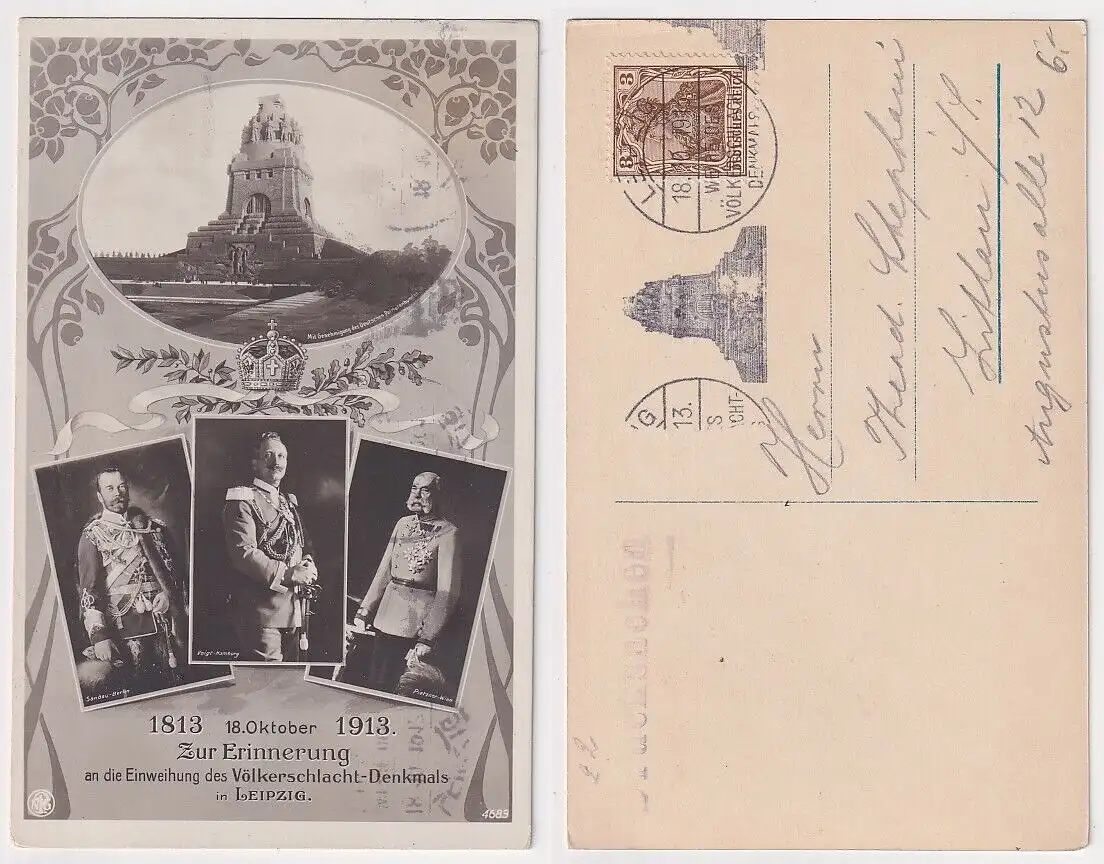 Mit Genehmigung des Deutschen Patriotenbundes
Sandau-Berlin
Voigt-Homburg
Pietzner-Wien
1813 18.Oktober 1913.
Zur Erinnerung
an die Einweihung des Völkerschlacht-Denkmals
in LEIPZIG.
NPG
4683
3 3
DEUTSCHES REICH
LE
18.10.
WEIHE DES
VÖLK
DENKMALS
IG
13.
S
CHT-
Herrn
Theod. Stephani
Augustus allee 12
6.-
22